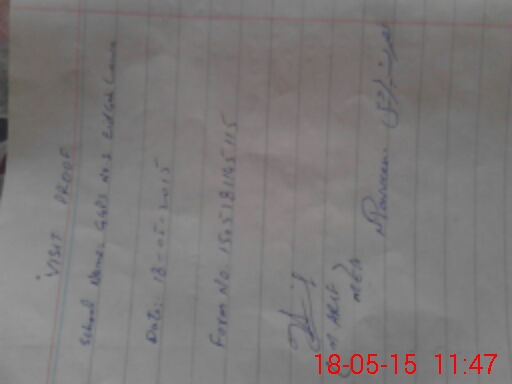 VISIT PROOF
School Name: GGPS No 3
Date: 18-05-2015
Form No. 1505181165115
M ARIF
MEA
18-05-15 11:47